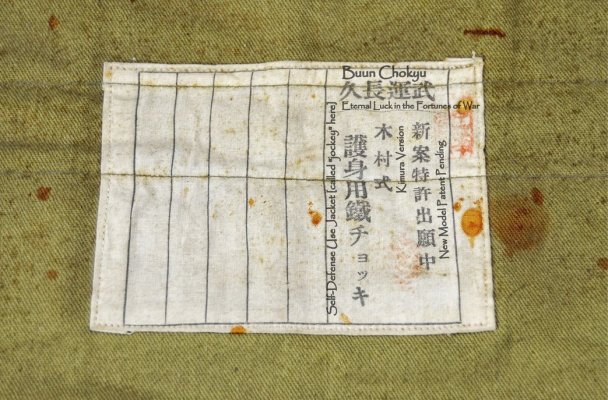 Buun Chokyu
久長運武
Eternal Luck in the Fortunes of War
新案特許出願中
New Model Patent Pending
木村式
Kimura Version
護身用鐵チョッキ
Self-Defense Use Jacket (called "jockey" here)